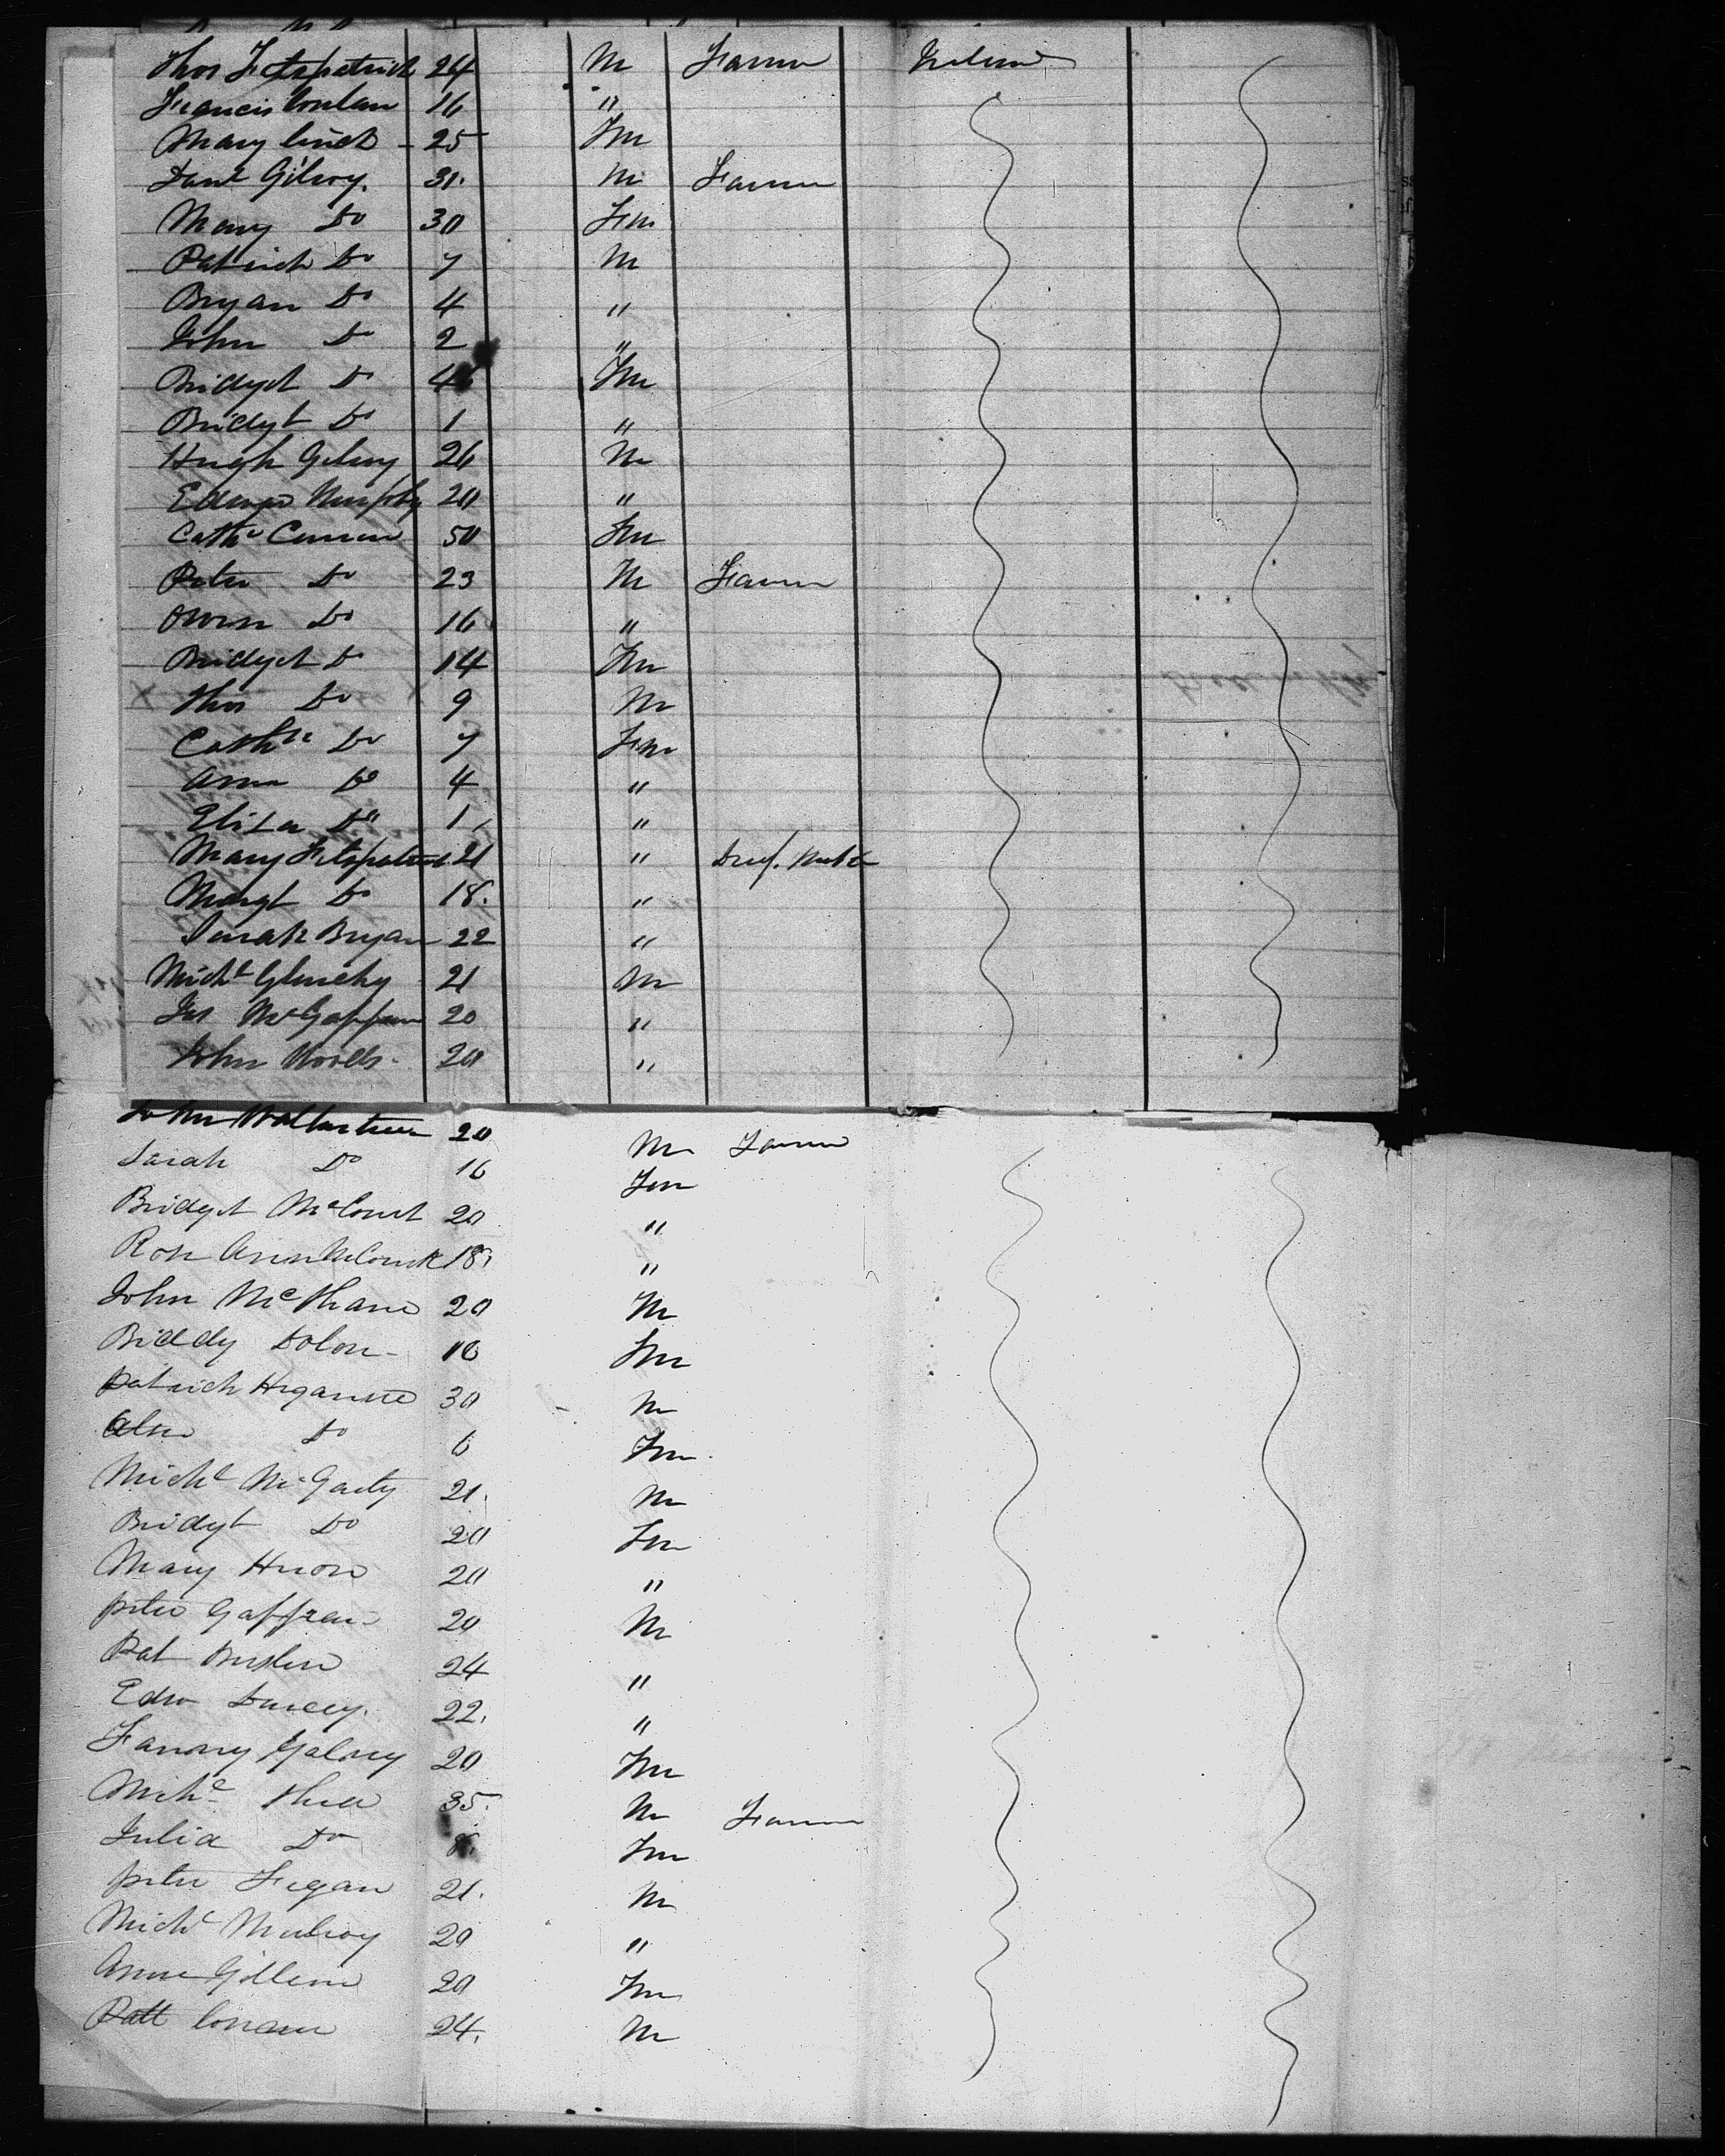 Thos Fitzpatrick 24 M Farmer Ireland
Francis Conlan 16 "
Mary Linch - 25 Fm
Danl Gilroy. 31. M Farmer
Mary Do 30 Fm
Patrick Do 7 M
Bryan Do 4 "
John Do 2 "
Bridget Do Fm
Bridgt Do 1 "
Hugh Gilroy 26 M
Edward Murphy 20 "
Cathe 50 Fm
Peter Do 23 M Farmer
Owen Do 16 "
Bridget Do 14 Fm
Thos Do 9 M
Cathe Do 7 Fm
Anna Do 4 "
Eliza Do 1 "
Mary Fitzpatrick 21 "
Margt Do 18. "
Sarah Bryan 22 "
Michl 21 M
Jas 20 "
John Woods 20 "
John 20 M Farmer
Sarah Do 16 Fm
Bridget McCourt 20 "
Rose Ann McCourt 18. "
John McShane 20 M
Biddy Dolon - 18 Fm
Patrick 30 M
Do 6 Fm
Michl McGarty 21. M
Bridgt Do 20 Fm
Mary 20 "
Peter 20 M
Pat 24 "
Edw 22. "
Fanny 20 Fm
Michl 35. M Farmer
Julia Do 8. Fm
Peter Fegan 21. M
Michl Mulroy 20 "
Anne 20 Fm
Patt 24. M